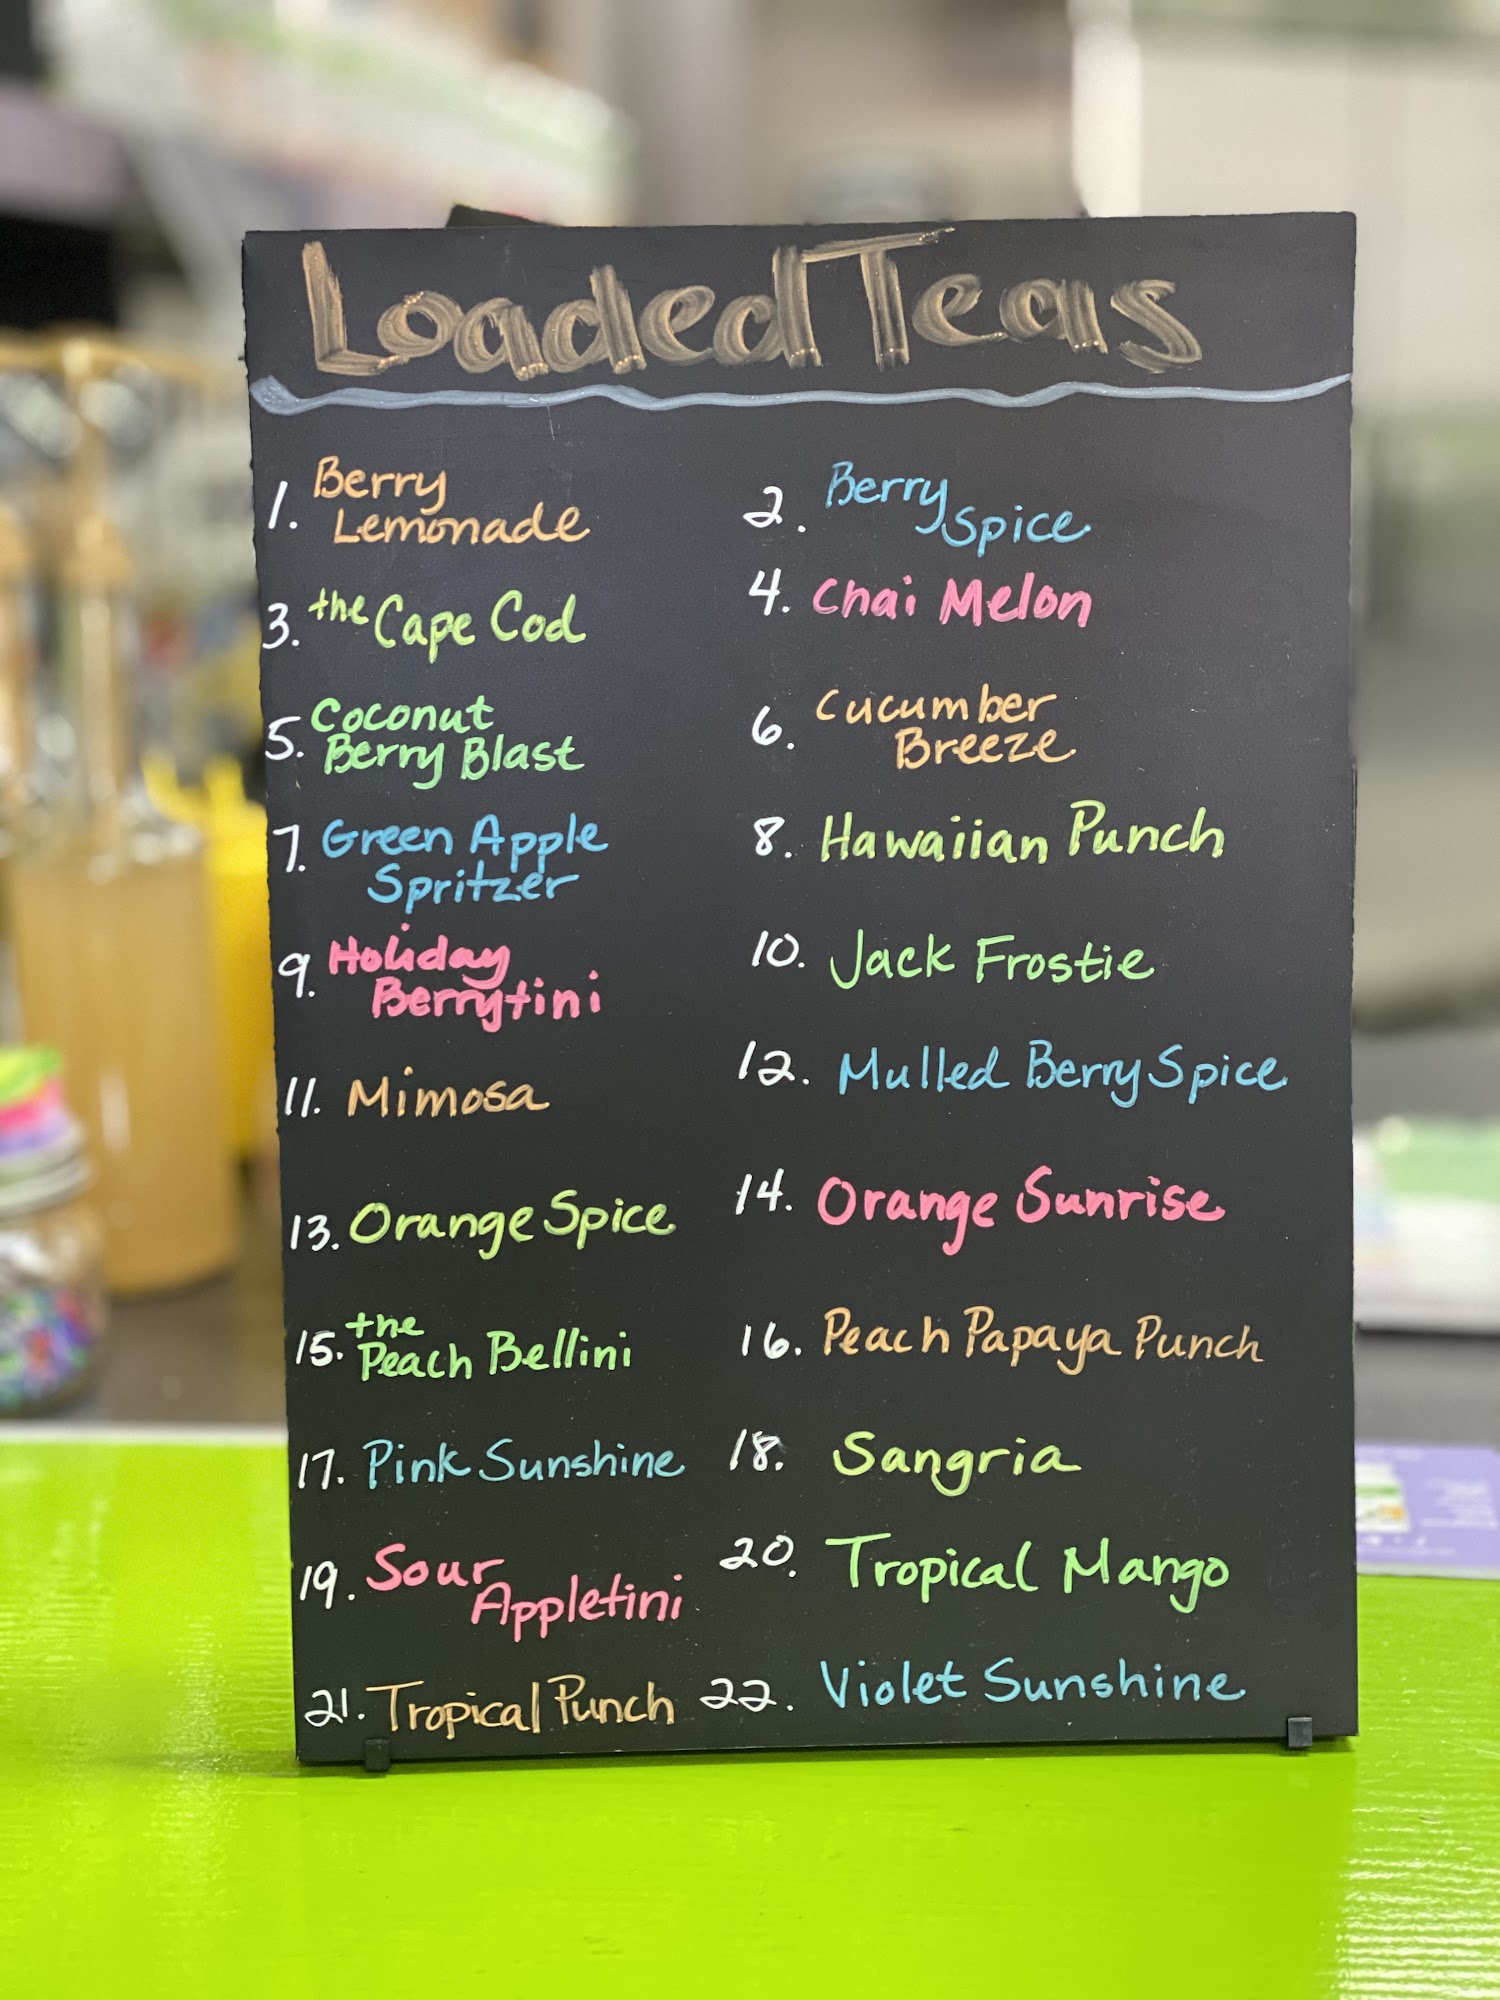 Loaded Teas
1. Berry
Lemonade
2. Berry
Spice
3. the Cape Cod
4. Chai Melon
5. Coconut
Berry Blast
6. Cucumber
Breeze
7. Green Apple
Spritzer
8. Hawaiian Punch
9. Holiday
Berrytini
10. Jack Frostie
11. Mimosa
12. Mulled Berry Spice
13. Orange Spice
14. Orange Sunrise
15. the
Peach Bellini
16. Peach Papaya Punch
17. Pink Sunshine
18. Sangria
19. Sour
Appletini
20. Tropical Mango
21. Tropical Punch
22. Violet Sunshine